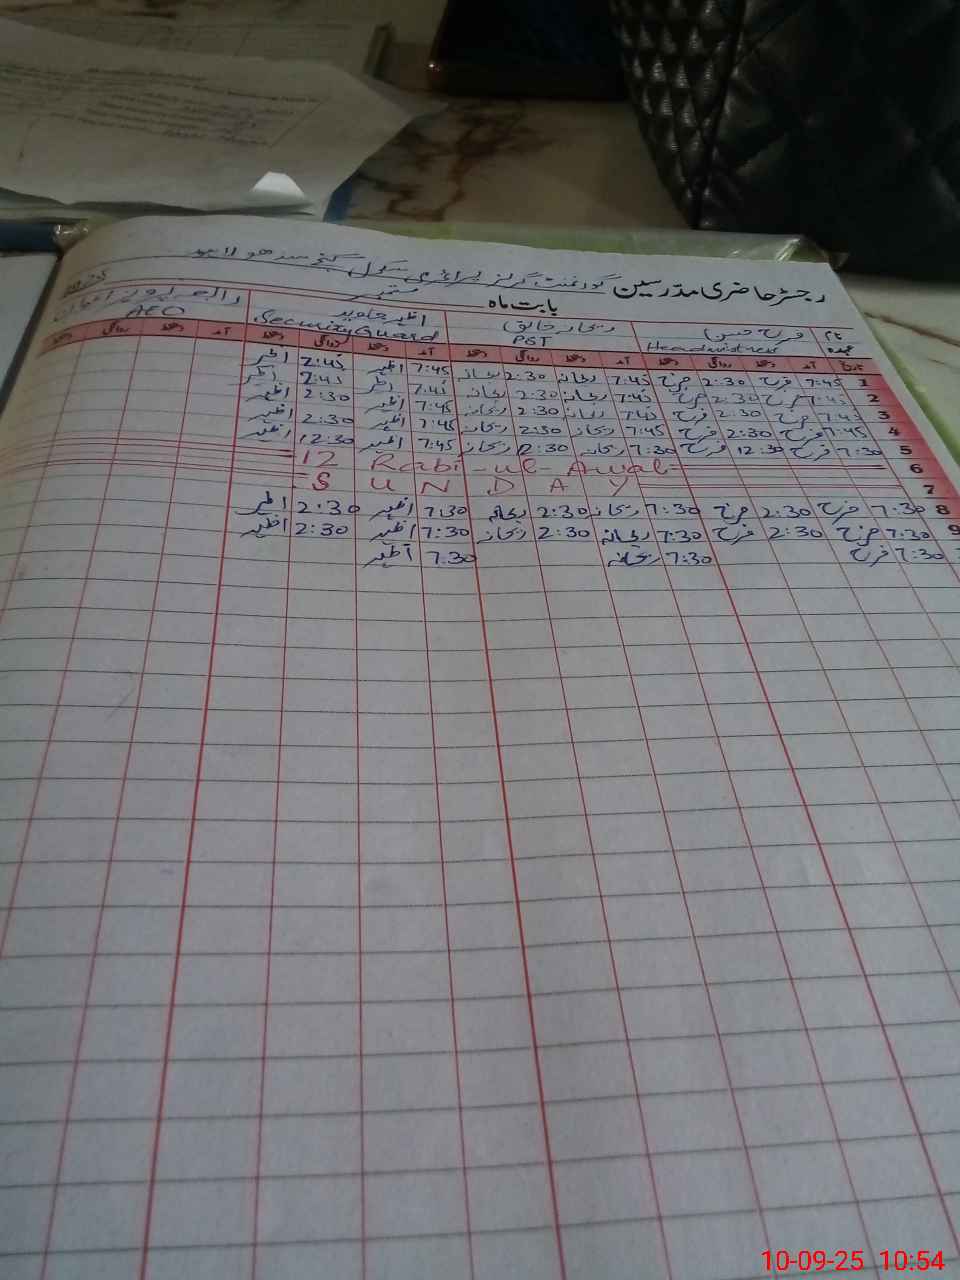 رجسٹر حاضری مدرسین گورنمنٹ گرلز پرائمری سکول گنج سدھو لاہور
بابت ماہ ستمبر
نام فرح ریحانہ خالق اظہر جاوید
عہدہ Headmistress PST Security Guard AEO
تاریخ آمد دستخط روانگی دستخط آمد دستخط روانگی دستخط آمد دستخط روانگی دستخط آمد دستخط روانگی دستخط
1 7:45 فرح 2:30 فرح 7:45 ریحانہ 2:30 ریحانہ 7:45 اظہر 2:45 اظہر
2 7:45 فرح 2:30 فرح 7:45 ریحانہ 2:30 ریحانہ 7:45 اظہر 2:45 اظہر
3 7:45 فرح 2:30 فرح 7:45 ریحانہ 2:30 ریحانہ 7:45 اظہر 2:30 اظہر
4 7:45 فرح 2:30 فرح 7:45 ریحانہ 2:30 ریحانہ 7:45 اظہر 2:30 اظہر
5 7:30 فرح 12:30 فرح 7:30 ریحانہ 12:30 ریحانہ 7:45 اظہر 12:30 اظہر
6 12 Rabi-ul-Awal
7 SUNDAY
8 7:30 فرح 2:30 فرح 7:30 ریحانہ 2:30 ریحانہ 7:30 اظہر 2:30 اظہر
9 7:30 فرح 2:30 فرح 7:30 ریحانہ 2:30 ریحانہ 7:30 اظہر 2:30 اظہر
7:30 فرح 7:30 ریحانہ 7:30 اظہر
10-09-25 10:54